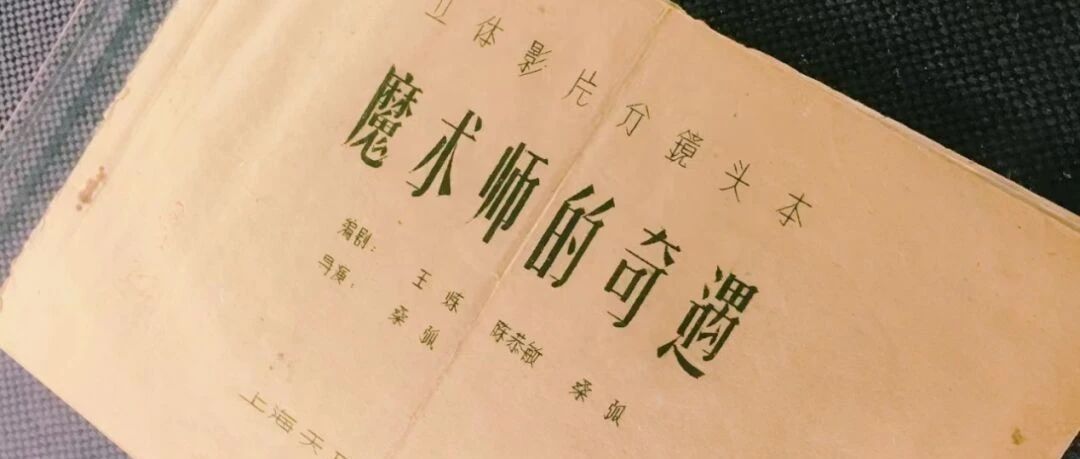 立体影片分鏡头本
魔术师的奇遇
编剧： 王炼 陈恭敏 桑弧
导演： 桑弧
上海天